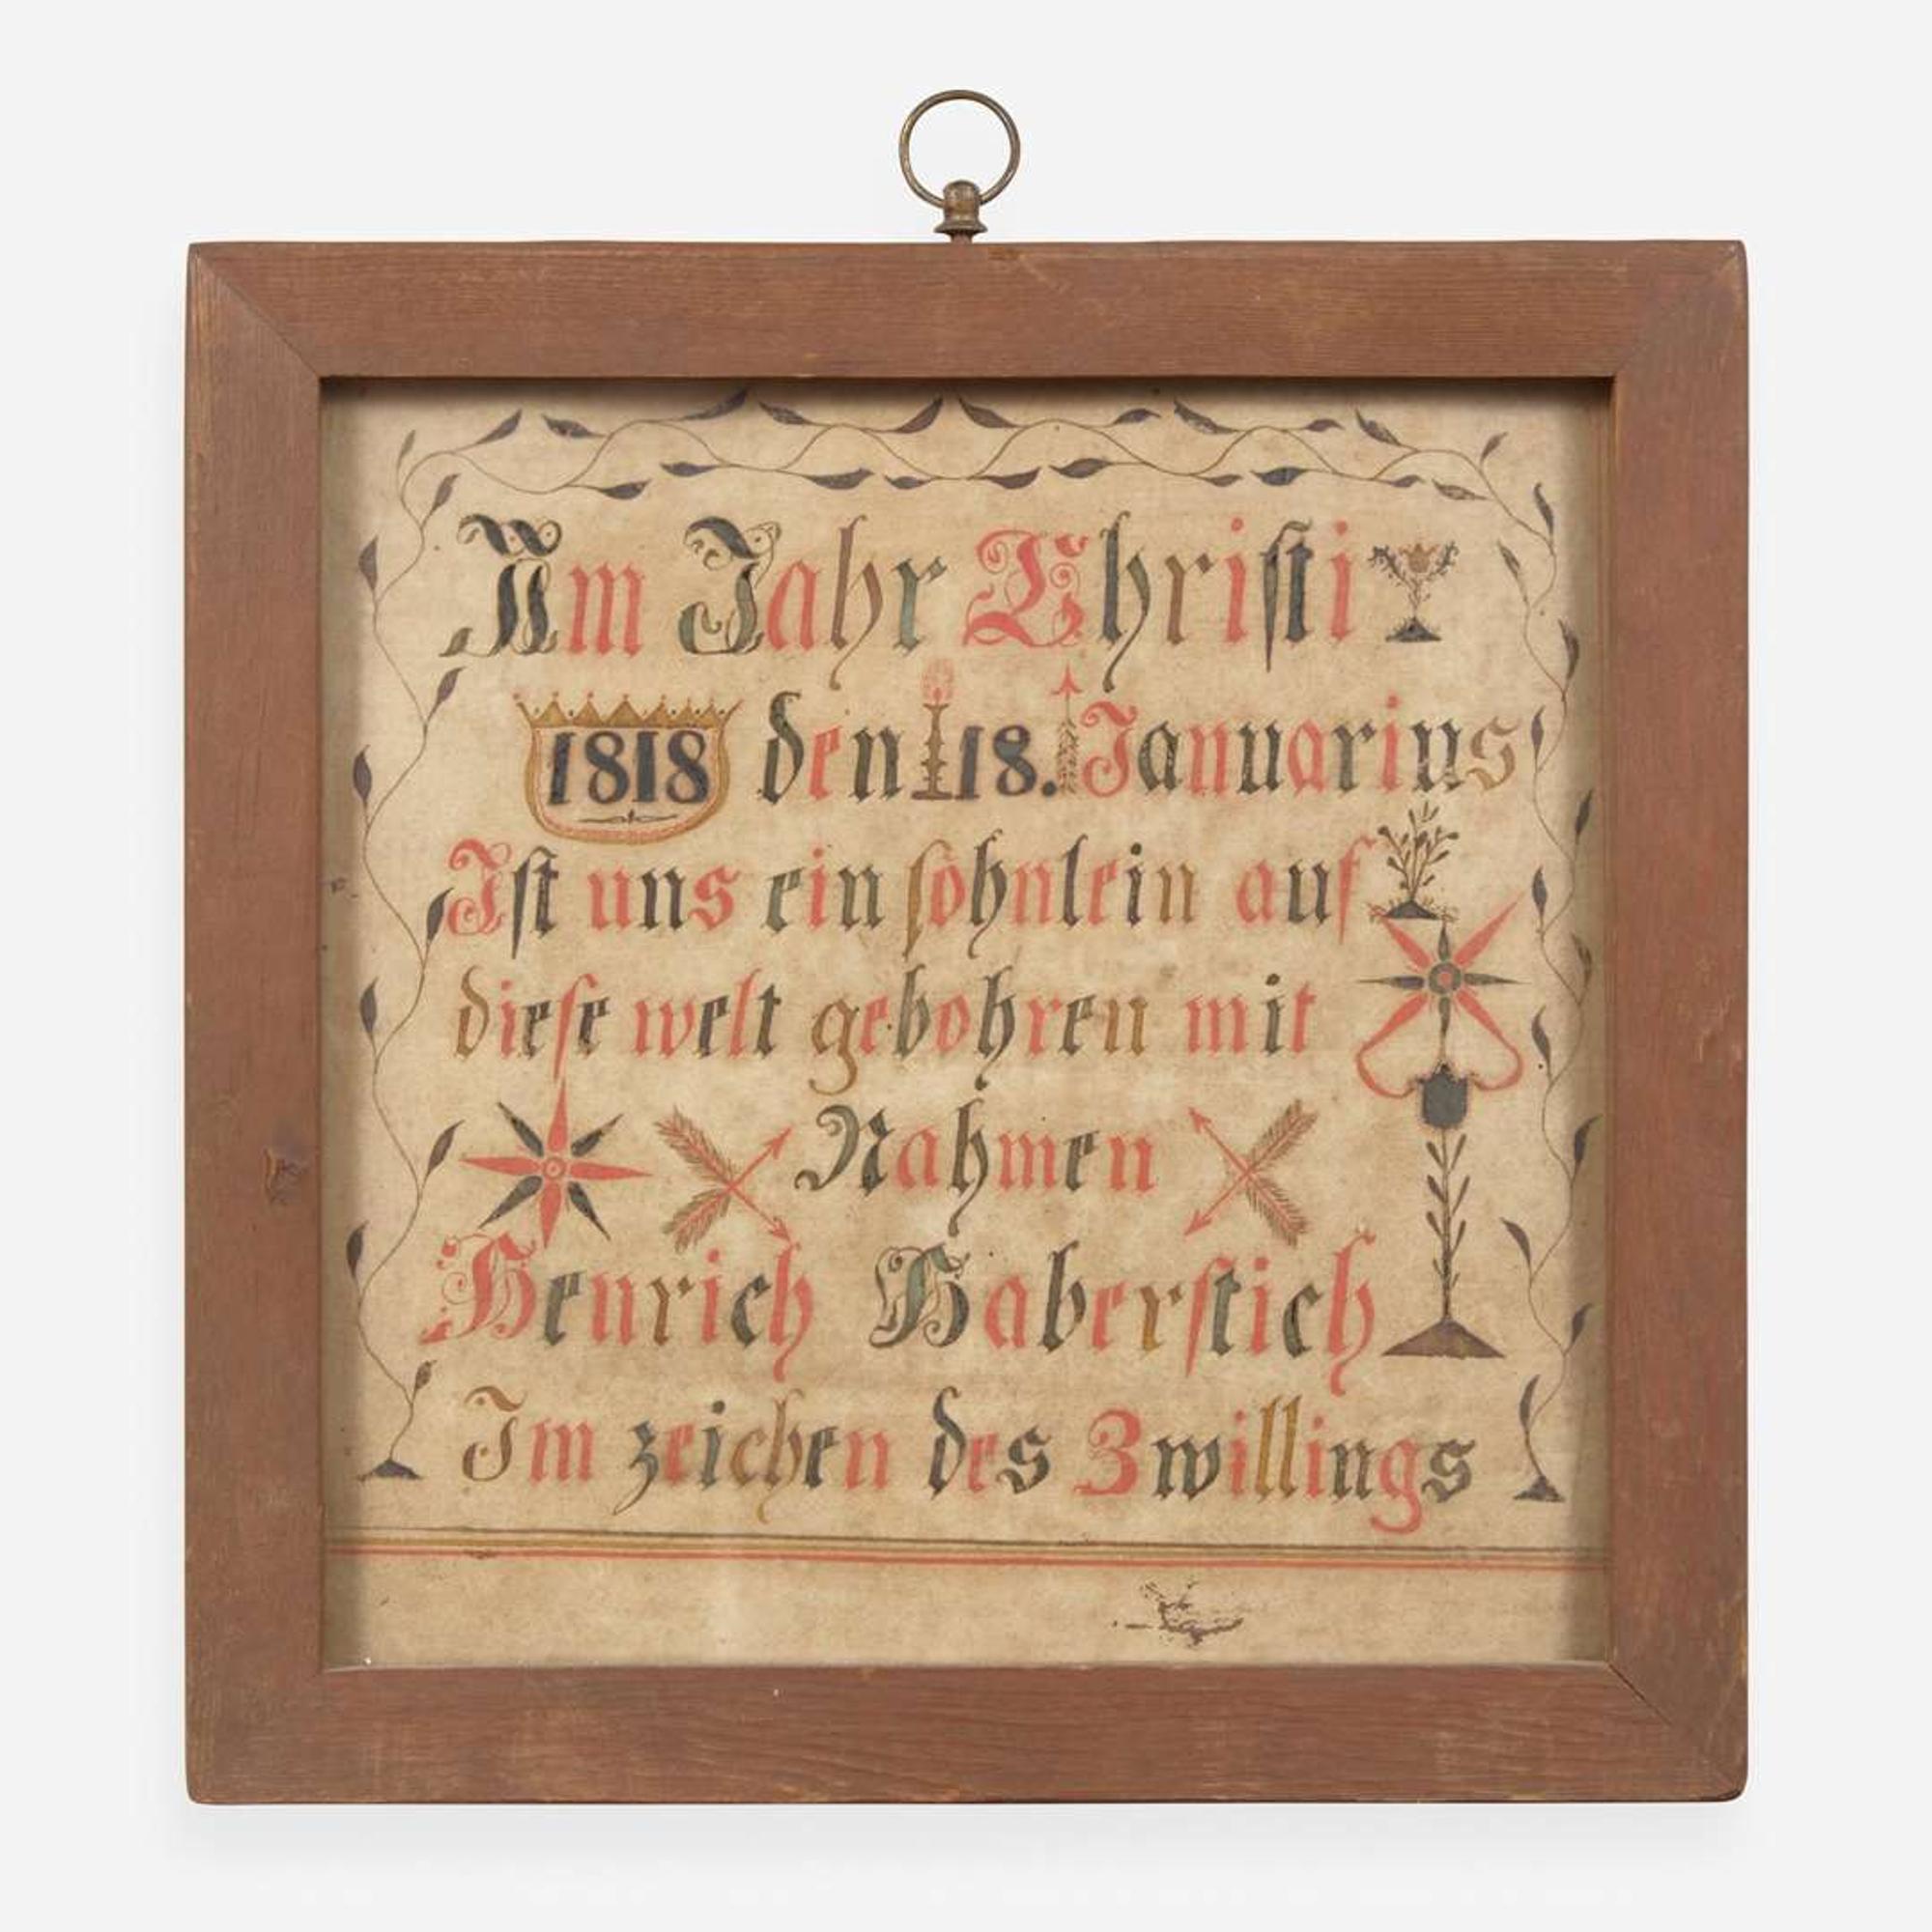 Im Jahr Christi
1818 den 18. Januarius
Ist uns ein söhnlein auf
diese welt gebohren mit
Nahmen
Henrich Haberstich
Im zeichen des Zwillings